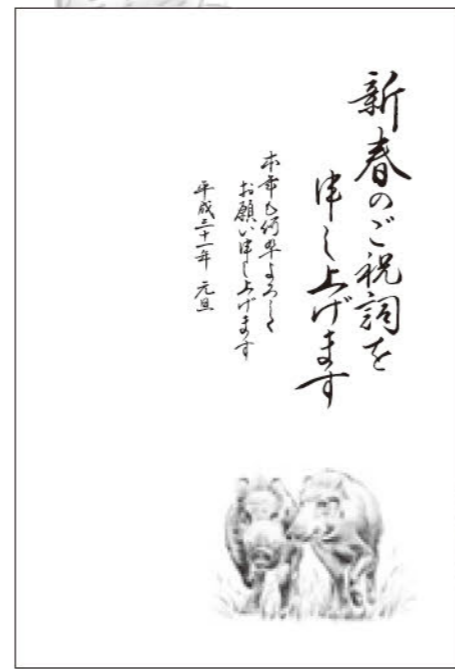 新春のご祝詞を
申し上げます
本年も何卒よろしく
お願い申し上げます
平成三十一年 元旦